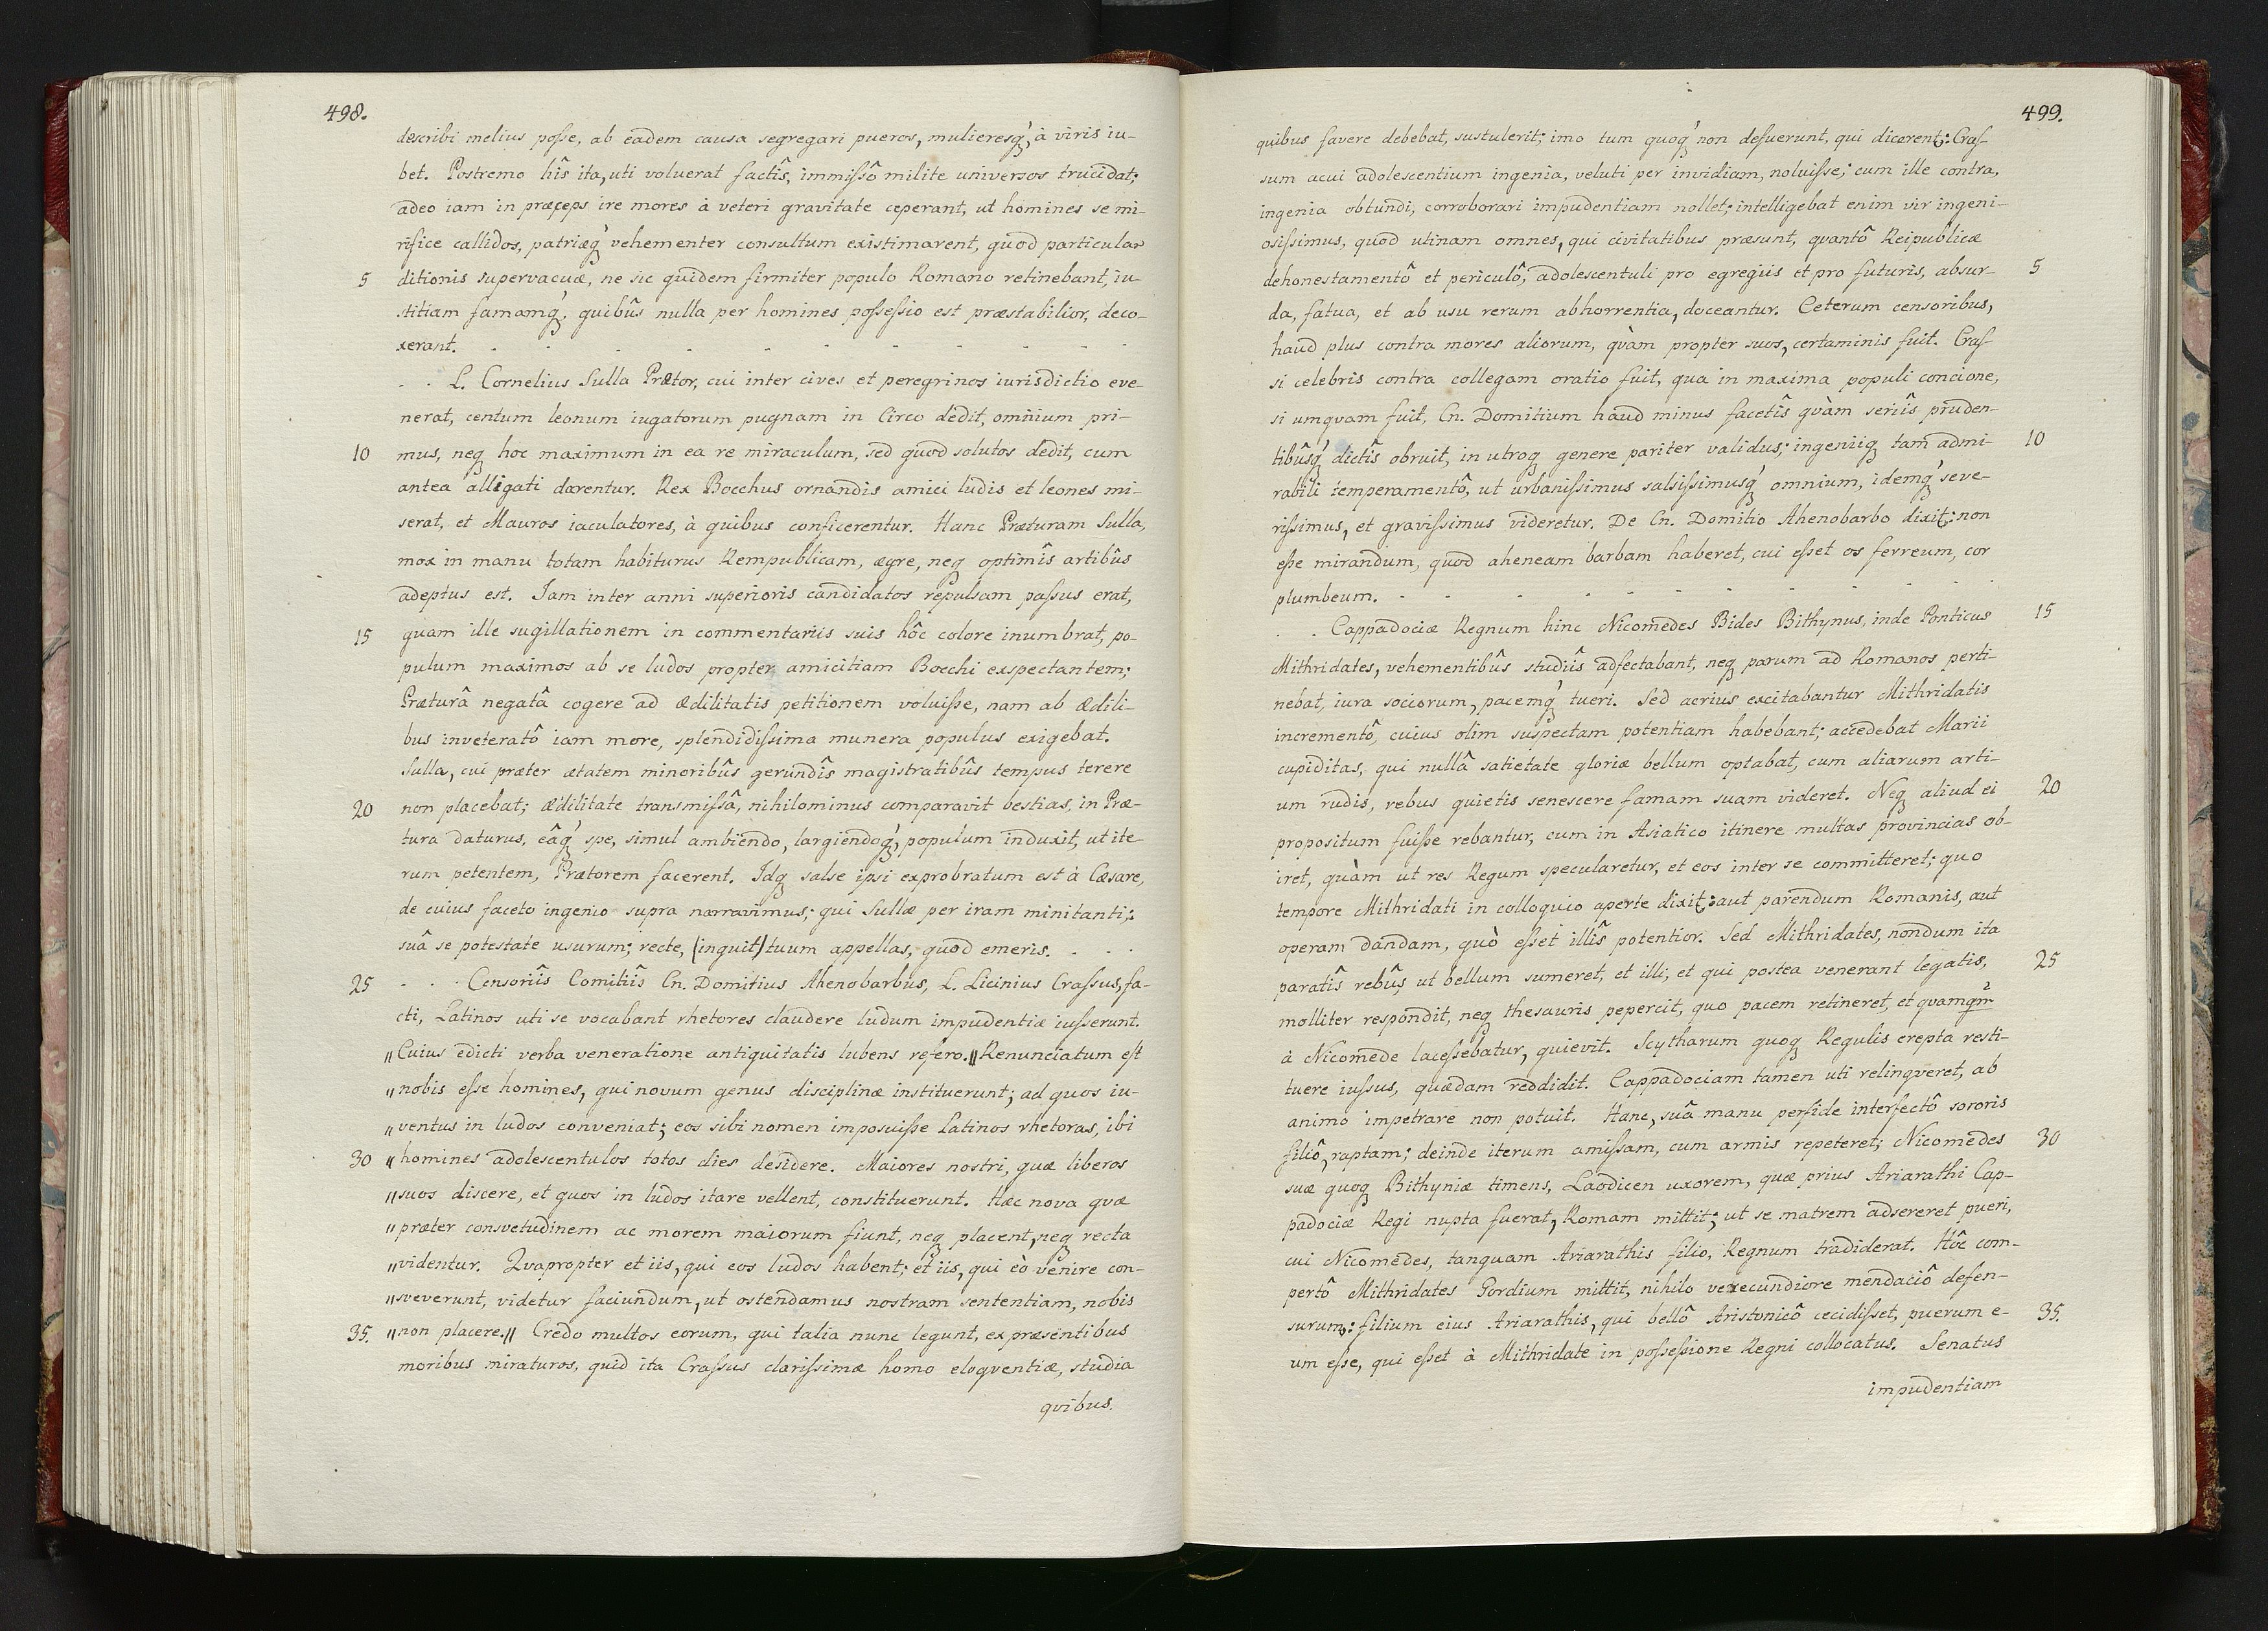 498.
describi melius poſse, ab eadem causa segregari pueros, mulieresq́, à viris iu-
bet. Postremo hîs ita, uti voluerat factîs, immiſsô milite universos trucidat;
adeo iam in præceps ire mores à veteri gravitate ceperant, ut homines se mi-
rifice callidos, patriæq́ vehementer consultum existimarent, quod particulas
5 ditionis supervacuæ, ne sic quidem firmiter populo Romano retinebant, iu-
stitiam famamq́, quibûs nulla per homines poſseſsio est præstabilior, deco-
xerant. - - - - - - - - - - -
- - L. Cornelius Sulla Prætor, cui inter cives et peregrinos iurisdictio eve-
nerat, centum leonum iugatorum pugnam in Circo dedit, omnium pri-
10 mus, neq hoc maximum in ea re miraculum, sed quod solutos dedit, cum
antea alligati darentur. Rex Bocchus ornandis amici ludis et leones mi-
serat, et Mauros iaculatores, à quibus conficerentur. Hanc Præturam Sulla,
mox in manu totam habiturus Rempublicam, ægre, neq optimîs artibûs
adeptus est. Iam inter anni superioris candidatos repulsam paſsus erat,
15 quam ille sugillationem in commentariis suis hôc colore inumbrat, po-
pulum maximos ab se ludos propter amicitiam Bocchi exspectantem;
Præturâ negatâ cogere ad ædilitatis petitionem voluiſse, nam ab ædili-
bus inveteratô iam more, splendidiſsima munera populus exigebat.
Sulla, cui præter ætatem minoribûs gerundîs magistratibûs tempus terere
20 non placebat; ædilitate transmiſsâ, nihilominus comparavit bestias, in Præ-
tura daturus, eâq́ spe, simul ambiendo, largiendoq́, populum induxit, ut ite-
rum petentem, Prætorem facerent. Idq salse ipsi exprobratum est à Cæsare,
de cuius faceto ingenio supra narravimus; qui Sullæ per iram minitanti:
suâ se potestate usurum; recte, (inquit) tuum appellas, quod emeris. - - -
25 - - - Censoriîs Comitiîs Cn. Domitius Ahenobarbus, L. Licinius Craſsus, fa-
cti, Latinos uti se vocabant rhetores claudere ludum impudentiæ iuſserunt.
〃Cuius edicti verba veneratione antiquitatis lubens refero.〃Renunciatum eſt
〃nobis eſse homines, qui novum genus disciplinæ instituerunt; ad quos iu-
〃ventus in ludos conveniat; eos sibi nomen imposuiſse Latinos rhetoras, ibi
30 〃homines adolescentulos totos dies desidere. Maiores nostri, quæ liberos
〃suos discere, et quos in ludos itare vellent, constituerunt. Hæc nova quæ
〃præter consvetudinem ac morem maiorum fiunt, neq placent, neq recta
〃videntur. Qvapropter et iis, qui eos ludos habent; et iis, qui eò venire con-
〃sveverunt, videtur faciundum, ut ostendamus nostram sententiam, nobis
35. 〃non placere.〃 Credo multos eorum, qui talia nunc legunt, ex præsentibus
moribus miraturos, quid ita Craſsus clariſsimæ homo eloqventiæ, studia
qvibus.
499.
quibus favere debebat, sustulerit; imo tum quoq́ non defuerunt, qui dicerent: Craſ-
sum acui adolescentium ingenia, veluti per invidiam, noluiſse; cum ille contra,
ingenia obtundi, corroborari impudentiam nollet; intelligebat enim vir ingeni-
osiſsimus, quod utinam omnes, qui civitatibus præsunt, qvantô Reipublicæ
dehonestamentô et periculô, adolescentuli pro egregiis et pro futuris, absur- 5
da, fatua, et ab usu rerum abhorrentia, doceantur. Ceterum censoribus,
haud plus contra mores aliorum, qvàm propter suos, certaminis fuit. Craſ-
si celebris contra collegam oratio fuit, qua in maxima populi concione,
si umqvam fuit, Cn. Domitium haud minus facetîs qvàm seriîs pruden-
tibûsq́ dictîs obruit, in utroq genere pariter validus; ingeniiq tam admi- 10
rabili temperamentô, ut urbaniſsimus salsiſsimusq́ omnium, idemq́ seve-
riſsimus, et graviſsimus videretur. De Cn. Domitio Ahenobarbo dixit: non
eſse mirandum, quod aheneam barbam haberet, cui eſset os ferreum, cor
plumbeum. - - - - - - - - - -
- - Cappadociæ Regnum hinc Nicomedes Bides Bithynus, inde Ponticus 15
Mithridates, vehementibûs studiîs adfectabant, neq parum ad Romanos perti-
nebat, iura sociorum, pacemq́ tueri. Sed acrius excitabantur Mithridatis
incrementô, cuius olim suspectam potentiam habebant; accedebat Marii
cupiditas, qui nullâ satietate gloriæ bellum optabat, cum aliarum arti-
um rudis, rebus quietis senescere famam suam videret. Neq aliud ei 20
propositum fuiſse rebantur, cum in Asiatico itinere multas provincias ob-
iret, quàm ut res Regum specularetur, et eos inter se committeret; quo
tempore Mithridati in colloquio aperte dixit: aut parendum Romanis, aut
operam dandam, quò eſset illîs potentior. Sed Mithridates, nondum ita
paratîs rebûs, ut bellum sumeret, et illi, et qui postea venerant legatis, 25
molliter respondit, neq thesauris pepercit, quo pacem retineret, et qvamqm
à Nicomede laceſsebatur, quievit. Scytharum quoq Regulis erepta resti-
tuere iuſsus, quædam reddidit. Cappadociam tamen uti relinqveret, ab
animo impetrare non potuit. Hanc, suâ manu perfide interfectô sororis
filiô, raptam; deinde iterum amiſsam, cum armis repeteret; Nicomedes 30
suæ quoq Bithyniæ timens, Laodicen uxorem, quæ prius Ariarathi Cap-
padociæ Regi nupta fuerat, Romam mittit; ut se matrem adsereret pueri,
cui Nicomedes, tanquam Ariarathis filio, Regnum tradiderat. Hôc com-
pertô Mithridates Gordium mittit, nihilo verecundiore mendaciô defen-
surum: filium eius Ariarathis, qui bellô Aristonicô cecidiſset, puerum e- 35.
um eſse, qui eſset à Mithridate in poſseſsione Regni collocatus. Senatus
impudentiam